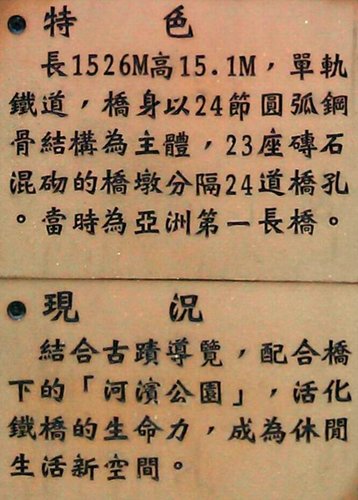 特色
長1526M高15.1M，單軌
鐵道，橋身以24節圓弧鋼
骨結構為主體，23座磚石
混砌的橋墩分隔24道橋孔
。當時為亞洲第一長橋。
現況
結合古蹟導覽，配合橋
下的「河濱公園」，活化
鐵橋的生命力，成為休閒
生活新空間。